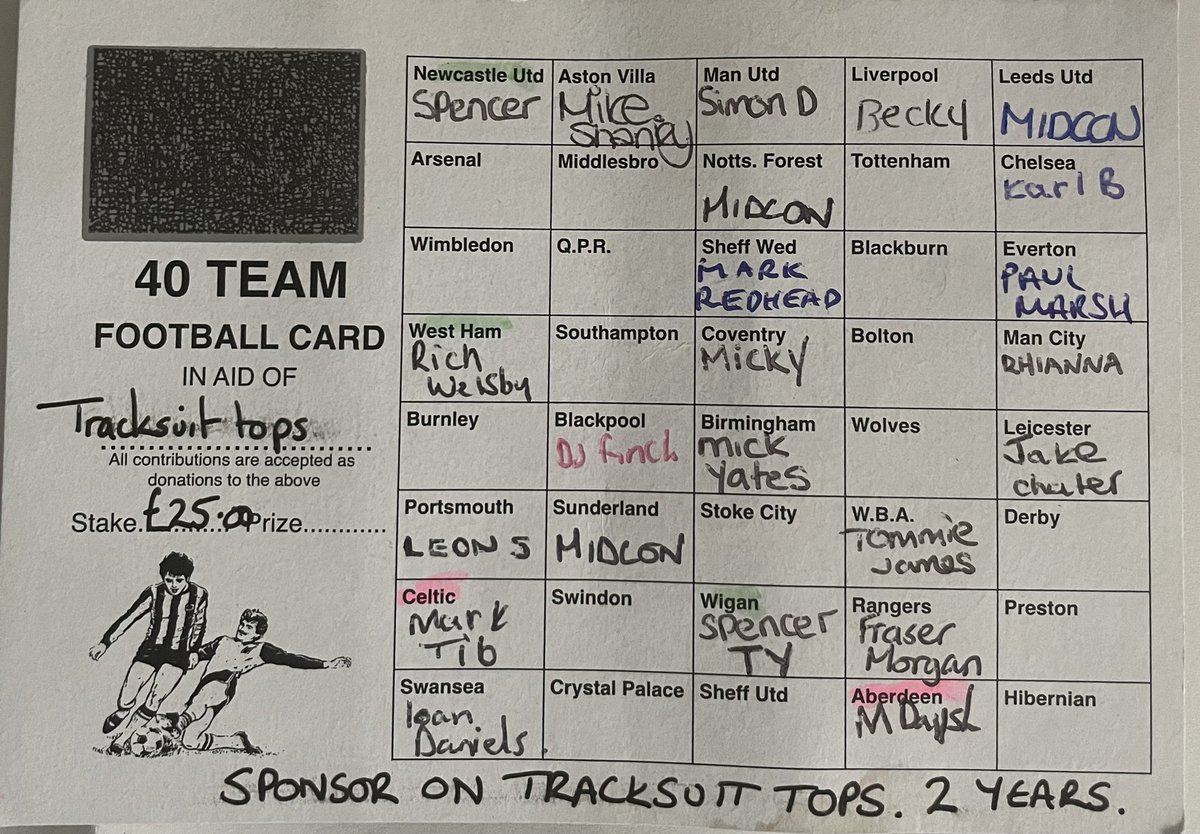 40 TEAM
FOOTBALL CARD
IN AID OF
Tracksuit tops
All contributions are accepted as
donations to the above
Stake. £25.00 Prize............
Newcastle Utd
Spencer
Aston Villa
Mike
Shanky
Man Utd
Simon D
Liverpool
Becky
Leeds Utd
MIDCON
Arsenal
Middlesbro
Notts. Forest
MIDCON
Tottenham
Chelsea
Karl B
Wimbledon
Q.P.R.
Sheff Wed
MARK
REDHEAD
Blackburn
Everton
PAUL
MARSH
West Ham
Rich
Welsby
Southampton
Coventry
Micky
Bolton
Man City
RHIANNA
Burnley
Blackpool
DJ finch
Birmingham
Mick
Yates
Wolves
Leicester
Jake
chater
Portsmouth
LEON S
Sunderland
MIDCON
Stoke City
W.B.A.
Tommie
James
Derby
Celtic
Mark
Tib
Swindon
Wigan
Spencer
TY
Rangers
Fraser
Morgan
Preston
Swansea
Ioan
Daniels.
Crystal Palace
Sheff Utd
Aberdeen
M
Hibernian
SPONSOR ON TRACKSUIT TOPS. 2 YEARS.